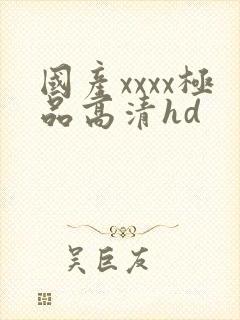 國產xxxx極
品高清hd
吴巨友